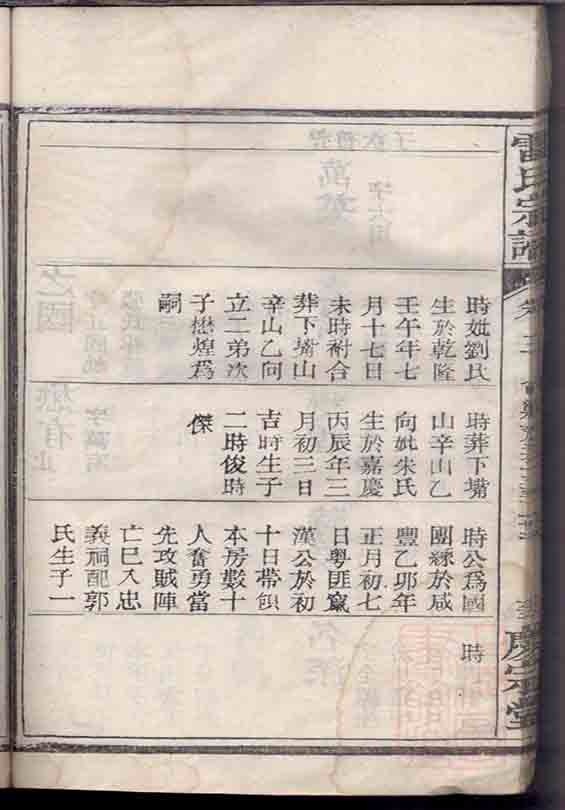 雷氏宗譜
卷三
慶宗堂
時妣劉氏
生於乾隆
壬午年七
月十七日
未時祔合
葬下嘴山
辛山乙向
立二弟次
子懋煌為
嗣
時葬下嘴
山辛山乙
向妣朱氏
生於嘉慶
丙辰年三
月初三日
吉時生子
二時俊時
傑
時公為國
團練於咸
豐乙卯年
正月初七
日粵匪竄
漢公於初
十日帶領
本房數十
人奮勇當
先攻賊陣
亡巳入忠
義祠配郭
氏生子一
時